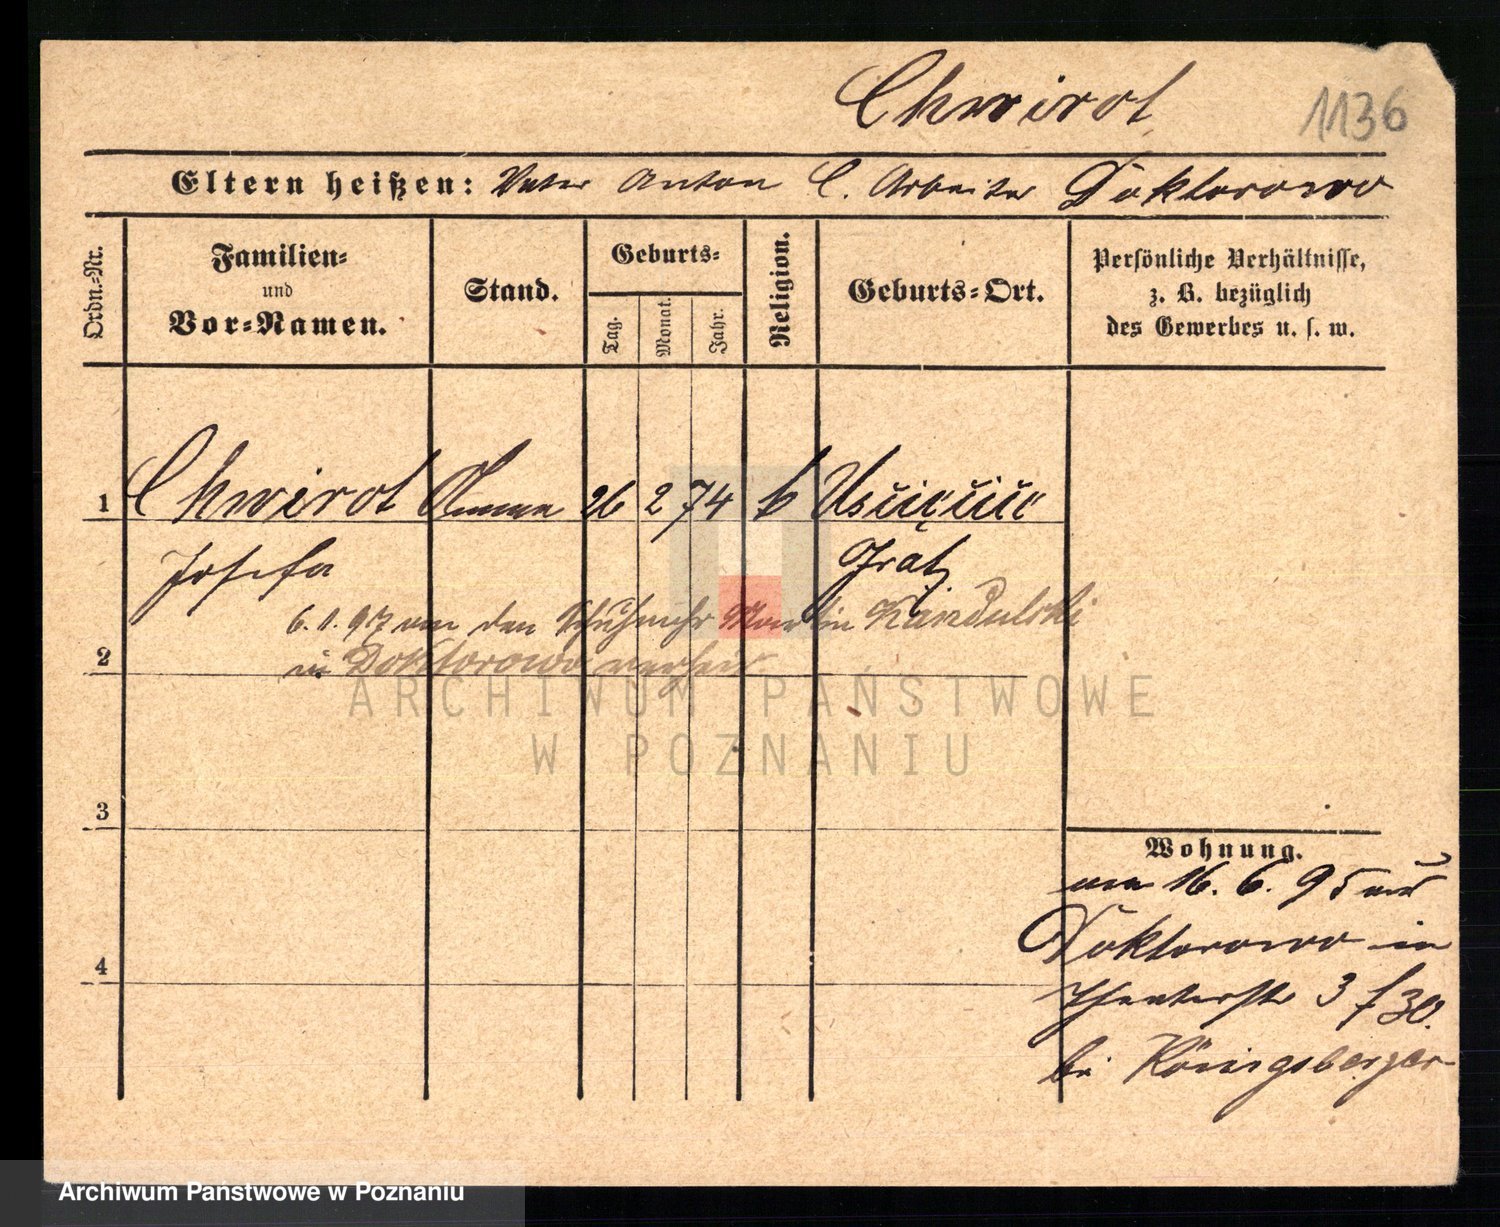 Chwirot 1136
Eltern heißen: Vater Anton C. Arbeiter Doktorowo
Ordn.-Nr.
Familien-
und
Vor-Namen.
Stand.
Geburts-
Tag.
Monat.
Jahr.
Religion.
Geburts-Ort.
Persönliche Verhältnisse,
z. B. bezüglich
des Gewerbes u. s. w.
1 Chwirot Amme 26 2 74 k
Josefa Grätz
6. 1. 97 an den Martin Kandulski
2 in Doktorowo verheir
3
4
Wohnung.
am 16. 6. 95 aus
Doktorowo in
Theaterstr 3 f 30.
bei Königsberger
ARCHIWUM PAŃSTWOWE
W POZNANIU
Archiwum Państwowe w Poznaniu